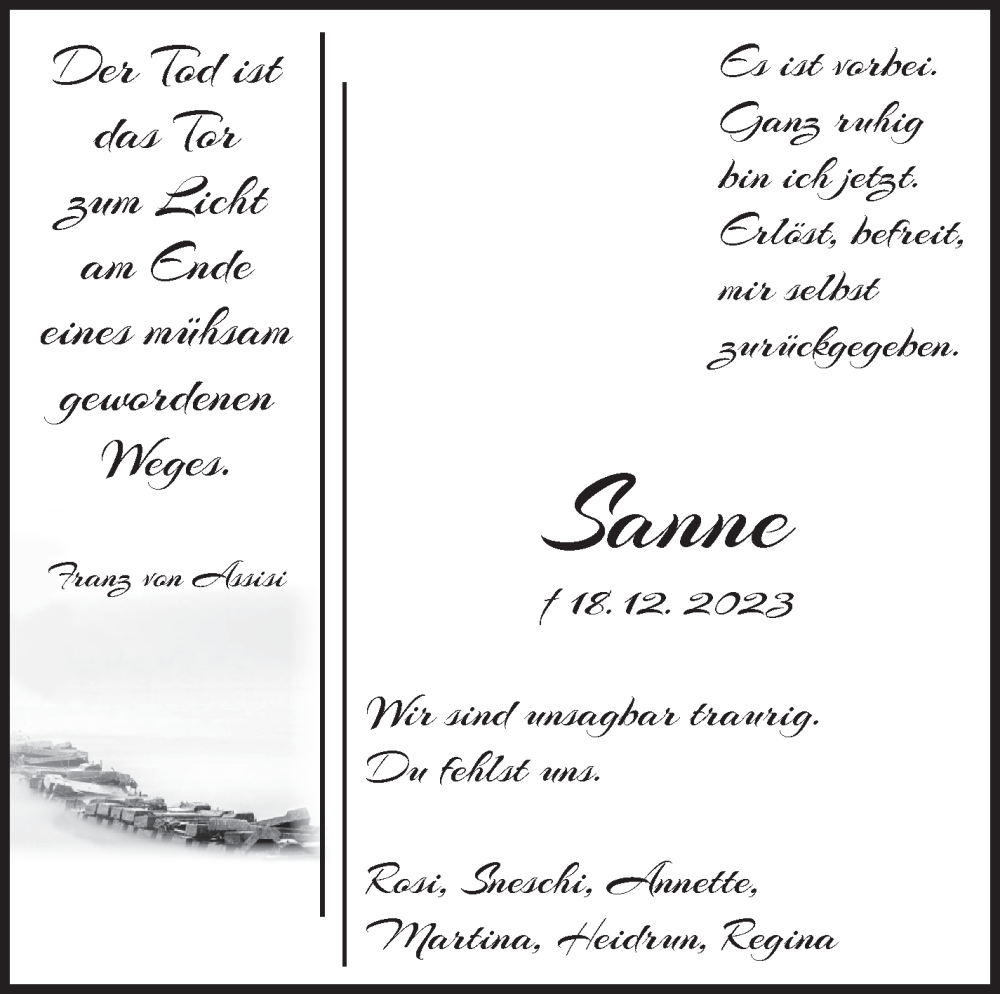 Der Tod ist
das Tor
zum Licht
am Ende
eines mühsam
gewordenen
Weges.
Franz von Assisi
Es ist vorbei.
Ganz ruhig
bin ich jetzt.
Erlöst, befreit,
mir selbst
zurückgegeben.
Sanne
† 18. 12. 2023
Wir sind unsagbar traurig.
Du fehlst uns.
Rosi, Sneschi, Annette,
Martina, Heidrun, Regina